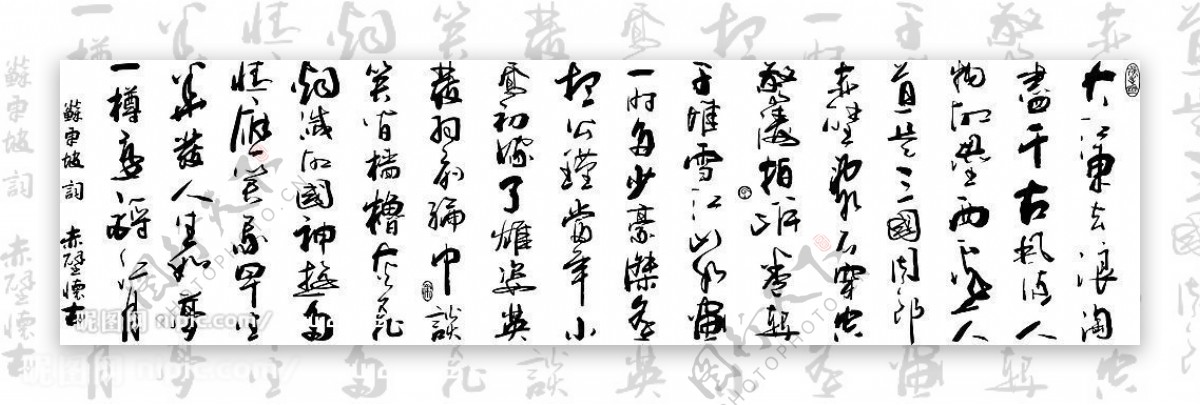 大江東去浪淘
盡千古風流人
物故壘西邊人
道是三國周郎
赤壁亂石穿空
驚濤拍岸卷起
千堆雪江山如畫
一時多少豪傑遙
想公瑾當年小
喬初嫁了雄姿英
發羽扇綸巾談
笑間檣櫓灰飛
煙滅故國神遊多
情應笑我早生
華發人生如夢
一樽還酹江月
蘇東坡詞 赤壁懷古